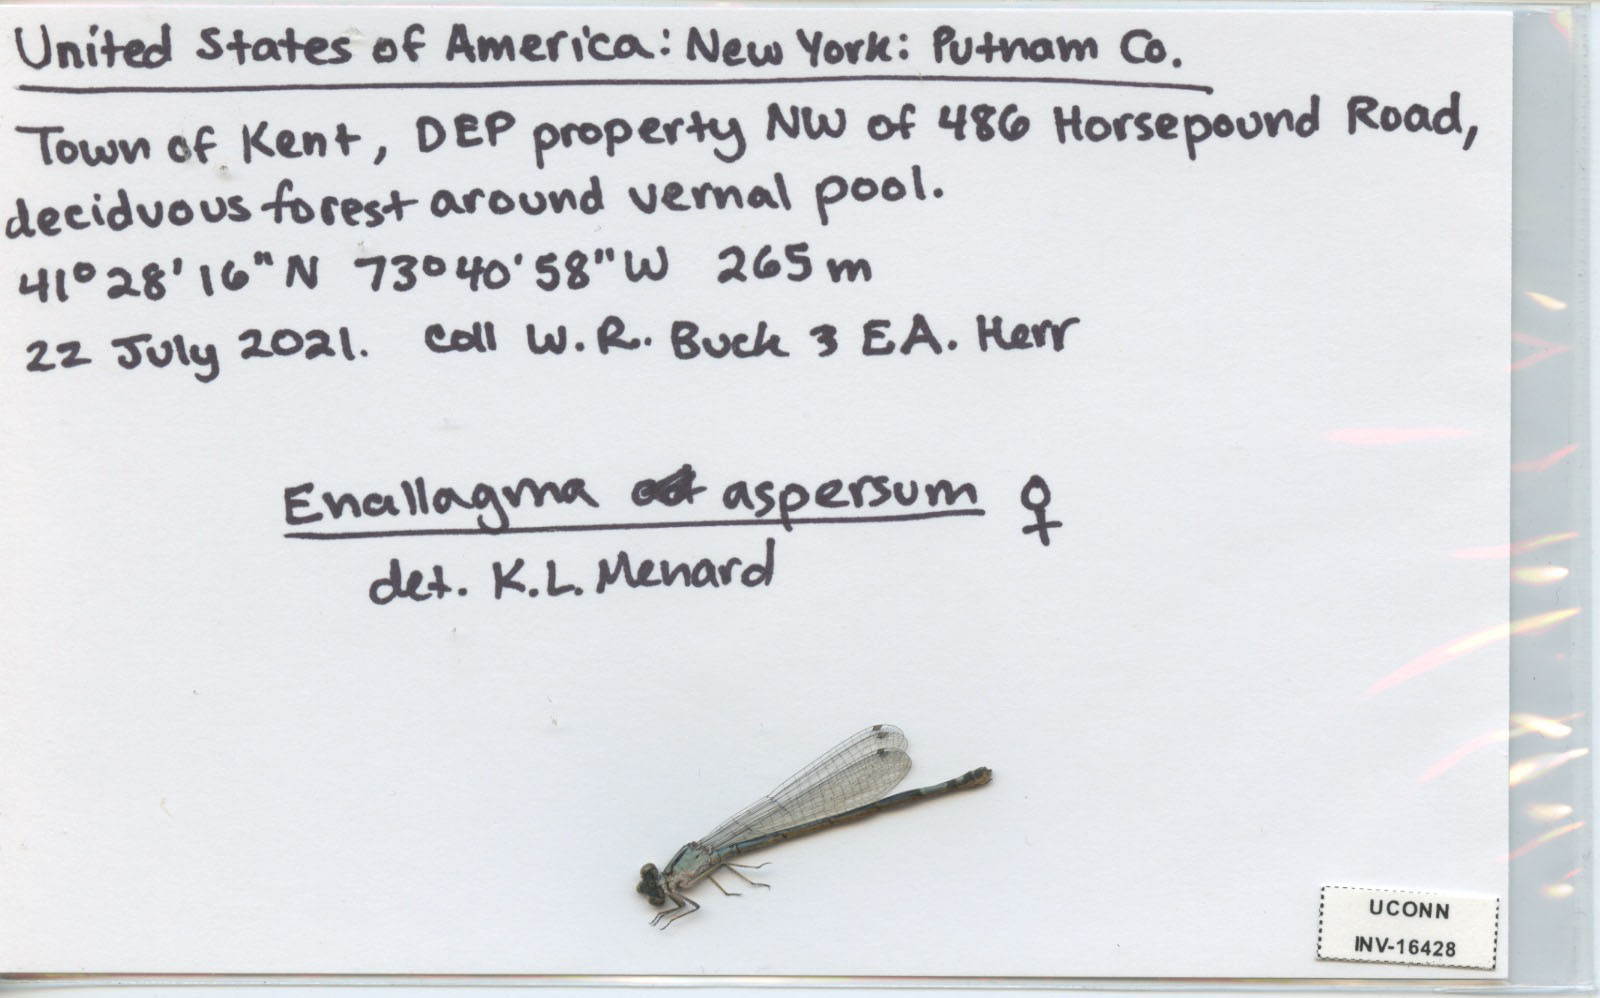 United States of America: New York: Putnam Co.
Town of Kent, DEP property NW of 486 Horsepound Road,
deciduous forest around vernal pool.
41° 28' 16" N 73° 40' 58" W 265 m
22 July 2021. coll W. R. Buck & E.A. Herr
Enallagma aspersum ♀
det. K.L. Menard
UCONN
INV-16428